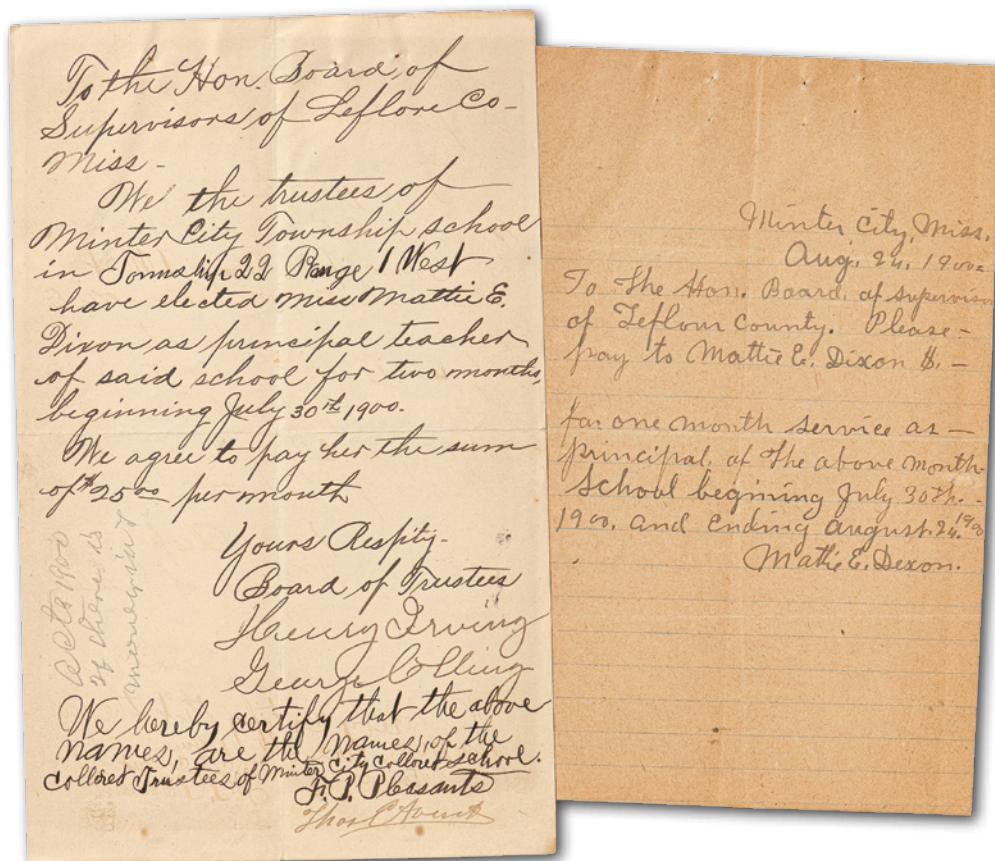 To the Hon. Board, of
Supervisors of Leflore Co-
Miss-
We the trustees of
Minter City Township school
in Township 22 Range 1 West
have elected Miss Mattie E.
Dixon as principal teacher
of said school for two months,
beginning July 30th 1900.
We agree to pay her the sum
of $25 00 per month
Yours Respfty-
Board of Trustees
Henry Irving
George
We hereby certify that the above
names, are the names, of the
Collored Trustees of Minter City Collored school.
F. P. Pleasants
Thos
1900
if there is
money in
Minter City, Miss.
Aug. 24, 1900.
To The Hon. Board, of Supervisor
of Leflour County. Please-
pay to Mattie E. Dixon $. -
for one month service as -
principal, of the above month-
School begining July 30th. -
1900. and Ending August. 24. 1900
Mattie E. Dexon.